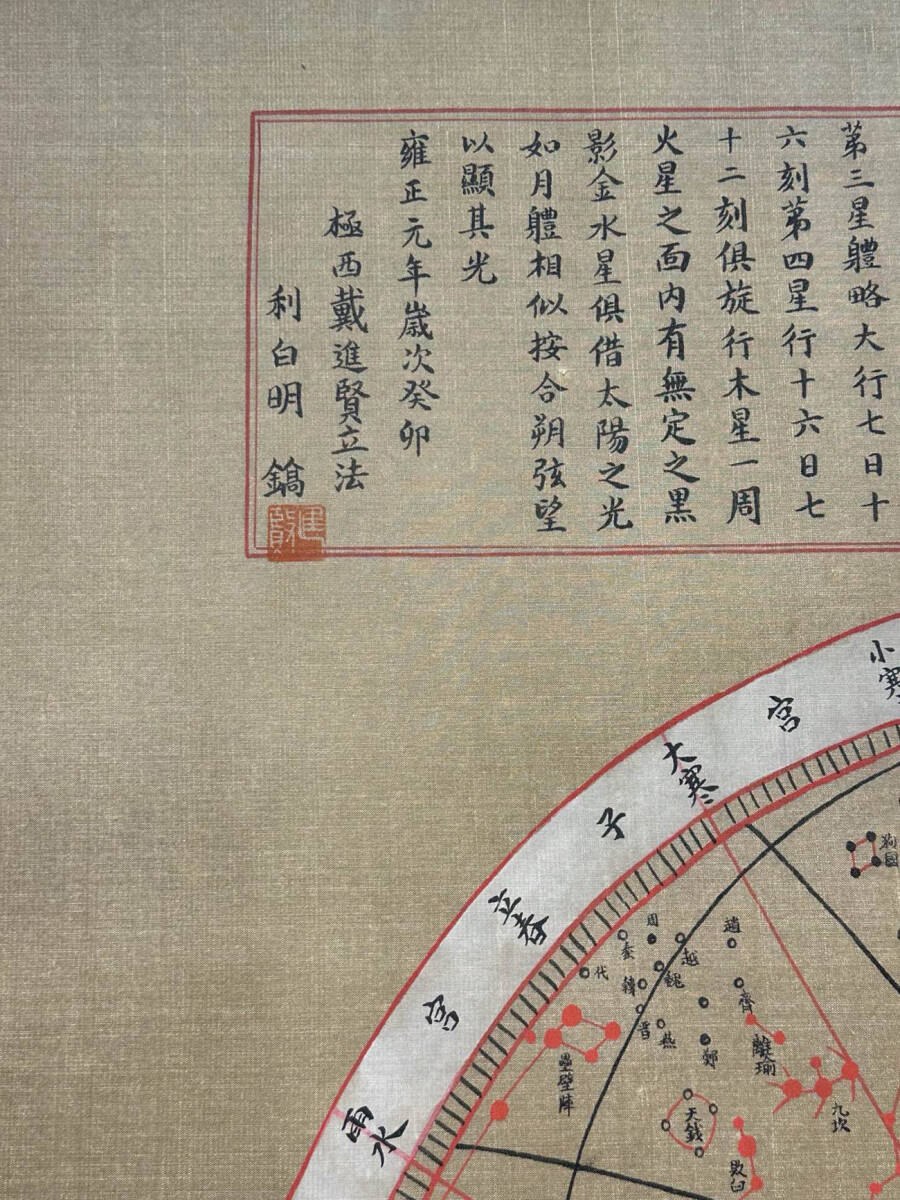 第三星軆略大行七日十
六刻第四星行十六日七
十二刻俱旋行木星一周
火星之面內有無定之黑
影金水星俱借太陽之光
如月軆相似按合朔弦望
以顯其光
雍正元年歲次癸卯
極西戴進賢立法
利白明 鐫
進賢
小寒
宮
大寒
子
立春
宮
雨水
狗國
趙
周
秦
越
代
魏
韓
齊
晋
燕
鄭
離瑜
壘壁陣
九坎
天錢
敗臼